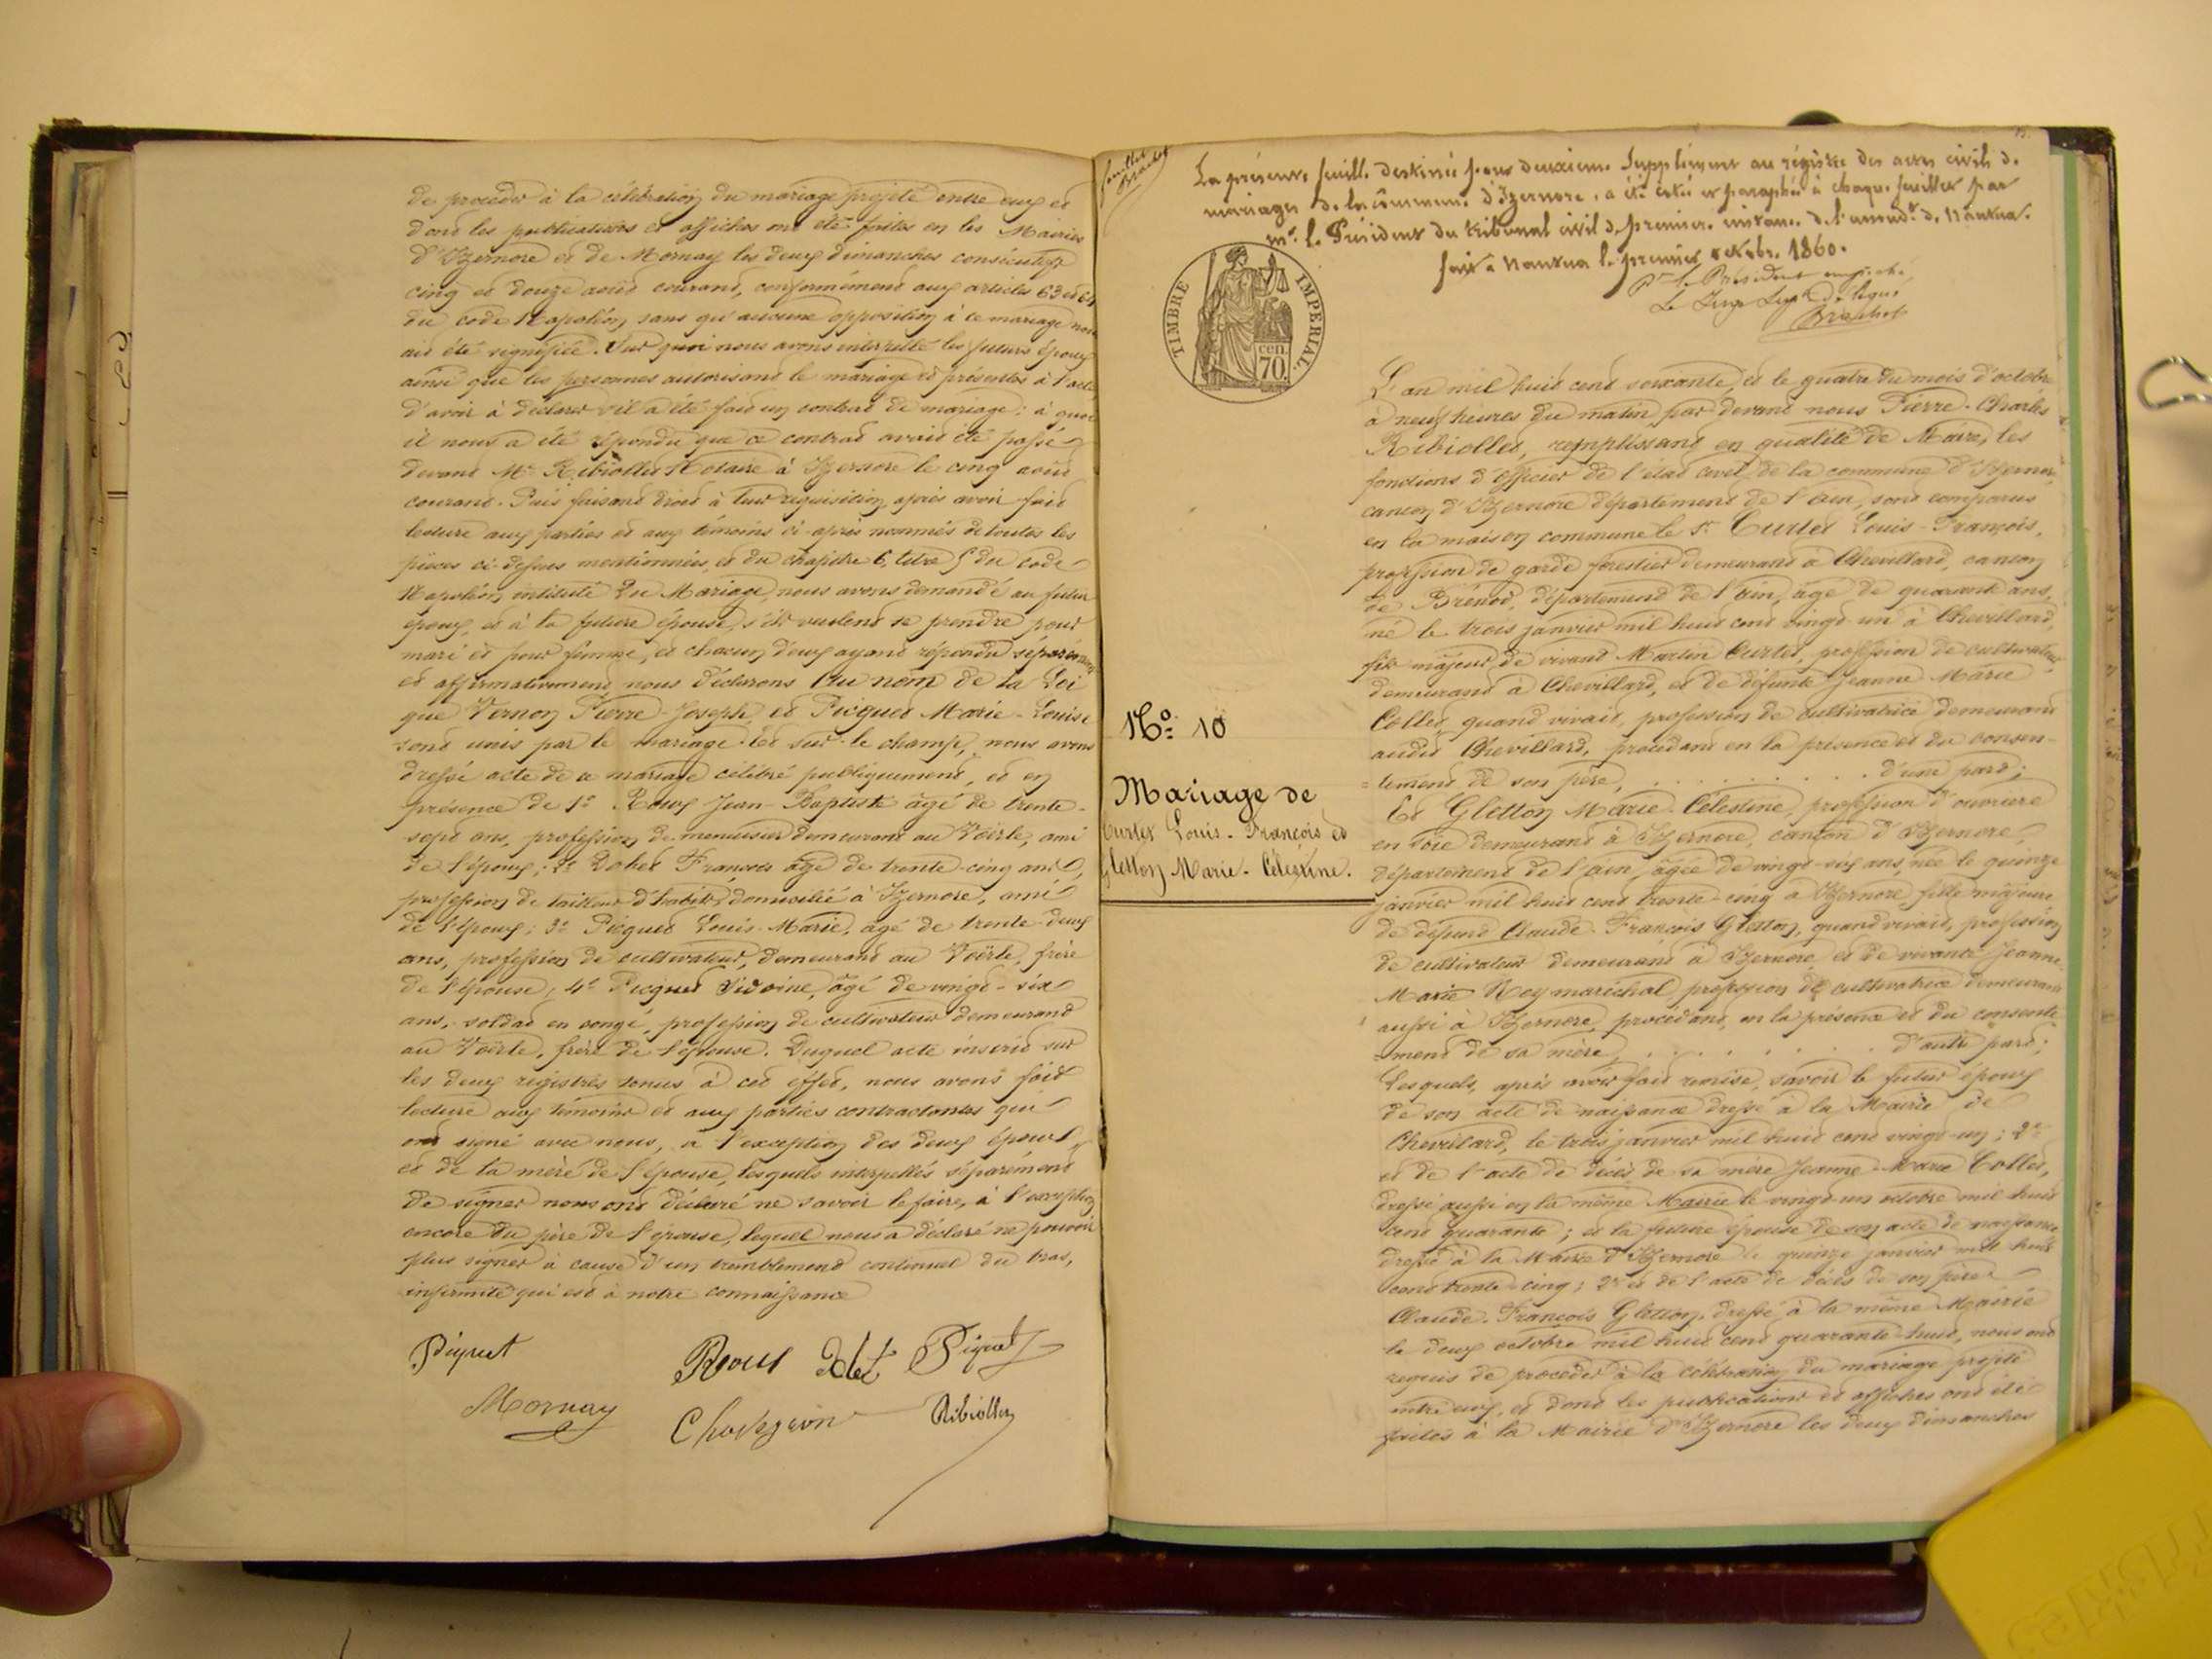 de procéder à la célébration du mariage projeté entre eux et
dont les publications et affiches ont été faites en les Mairies
d'Izernore et de Mornay les deux dimanches consécutifs
cinq et douze août courant, conformément aux articles 63 et 64
du code Napoléon, sans qu'aucune opposition à ce mariage nous
ait été signifiée. Sur quoi nous avons interpellé les futurs époux
ainsi que les personnes autorisant le mariage et présentes à l'acte
d'avoir à déclarer s'il a été fait un contrat de mariage: à quoi
il nous a été répondu que ce contrat avait été passé
devant Me Ribiollet Notaire à Izernore le cinq août
courant. Puis faisant droit à leur requisition, après avoir fait
lecture aux parties et aux témoins ci-après nommés de toutes les
pièces ci-dessus mentionnées, et du chapitre 6, titre 5 du code
Napoléon, intitulé Du Mariage, nous avons demandé au futur
époux, et à la future épouse, s'ils veulent se prendre pour
mari et pour femme, et chacun d'eux ayant répondu séparément
et affirmativement, nous déclarons Au nom de la Loi
que Vernon Pierre-Joseph, et Picquet Marie-Louise
sont unis par le mariage. Et sur-le champ, nous avons
dressé acte de ce mariage célébré publiquement, et en
présence de 1° Roux Jean-Baptiste âgé de trente-
sept ans, profession de menuisier demeurant au Voërle, ami
de l'époux; 2° Dolet François âgé de trente-cinq ans,
profession de tailleur d'habits, domicilié à Izernore, ami
de l'époux; 3° Picquet Louis-Marie, âgé de trente-deux
ans, profession de cultivateur, demeurant au Voërle, frère
de l'épouse; 4° Picquet Sidoine, âgé de vingt-six
ans, soldat en congé, profession de cultivateur demeurant
au Voërle, frère de l'épouse. Duquel acte inscrit sur
les deux registres tenus à cet effet, nous avons fait
lecture aux témoins et aux parties contractantes qui
ont signé avec nous, à l'exception des deux époux,
et de la mère de l'épouse, lesquels interpellés séparément
de signer nous ont déclaré ne savoir le faire, à l'exception
encore du père de l'épouse, lequel nous a déclaré ne pouvoir
plus signer à cause d'un tremblement continuel du bras,
infirmité qui est à notre connaissance
Piquet Roux Dolet Piquet
Mornay Ribiollet
feuillet
Brachet
La présente feuille destinée pour deuxième Supplément au régistre des actes civils de
mariages de la commune d'Izernore, a été cotée et paraphée à chaque feuillet par
mr. le Président du tribunal civil de première instance de l'arrondt de Nantua.
fait à Nantua le premier octobre 1860.
Pr le Président empêché,
Le Juge Supt délégué
Brachet
TIMBRE IMPERIAL
cen.
70
No: 10
Mariage de
Curtet Louis-François et
Gletton Marie-Célestine.
L'an mil huit cent soixante, et le quatre du mois d'octobre
à neuf heures du matin, par devant nous Pierre-Charles
Ribiollet, remplissant en qualité de Maire, les
fonctions d'officier de l'état civil de la commune d'Izernore,
canton d'Izernore département de l'Ain, sont comparus
en la maison commune le Sr Curtet Louis-François,
profession de garde forestier demeurant à Chevillard, canton
de Brénod, département de l'Ain, âgé de quarante ans,
né le trois janvier mil huit cent vingt-un à Chevillard,
fils majeur de vivant Martin Curtet, profession de cultivateur
demeurant à Chevillard, et de défunte Jeanne Marie
Collet, quand vivait, profession de cultivatrice demeurant
audit Chevillard, procédant en la présence et du consen-
=tement de son père, . . . . . . . . . d'une part;
Et Gletton Marie-Célestine, profession d'ouvrière
en soie demeurant à Izernore, canton d'Izernore,
département de l'Ain, âgée de vingt-six ans, née le quinze
janvier mil huit cent trente-cinq à Izernore, fille majeure
de défunt Claude-François Gletton, quand vivait, profession
de cultivateur demeurant à Izernore et de vivante Jeanne-
Marie Reymaréchal, profession de cultivatrice demeurant
aussi à Izernore, procédant en la présence et du consente
=ment de sa mère, . . . . . . . d'autre part;
Lesquels, après avoir fait remise, savoir le futur époux
de son acte de naissance dressé à la Mairie de
Chevillard, le trois janvier mil huit cent vingt-un; 2°
et de l'acte de décès de sa mère Jeanne-Marie Collet,
dressé aussi en la même Mairie le vingt-un octobre mil huit
cent quarante; et la future épouse de son acte de naissance
dressé à la Mairie d'Izernore le quinze janvier mil huit
cent trente-cinq; 2° et de l'acte de décès de son père
Claude-François Gletton, dressé à la même Mairie
le deux octobre mil huit cent quarante-huit, nous ont
requis de procéder à la célébration du mariage projeté
entre eux, et dont les publications et affiches ont été
faites à la Mairie d'Izernore les deux dimanches